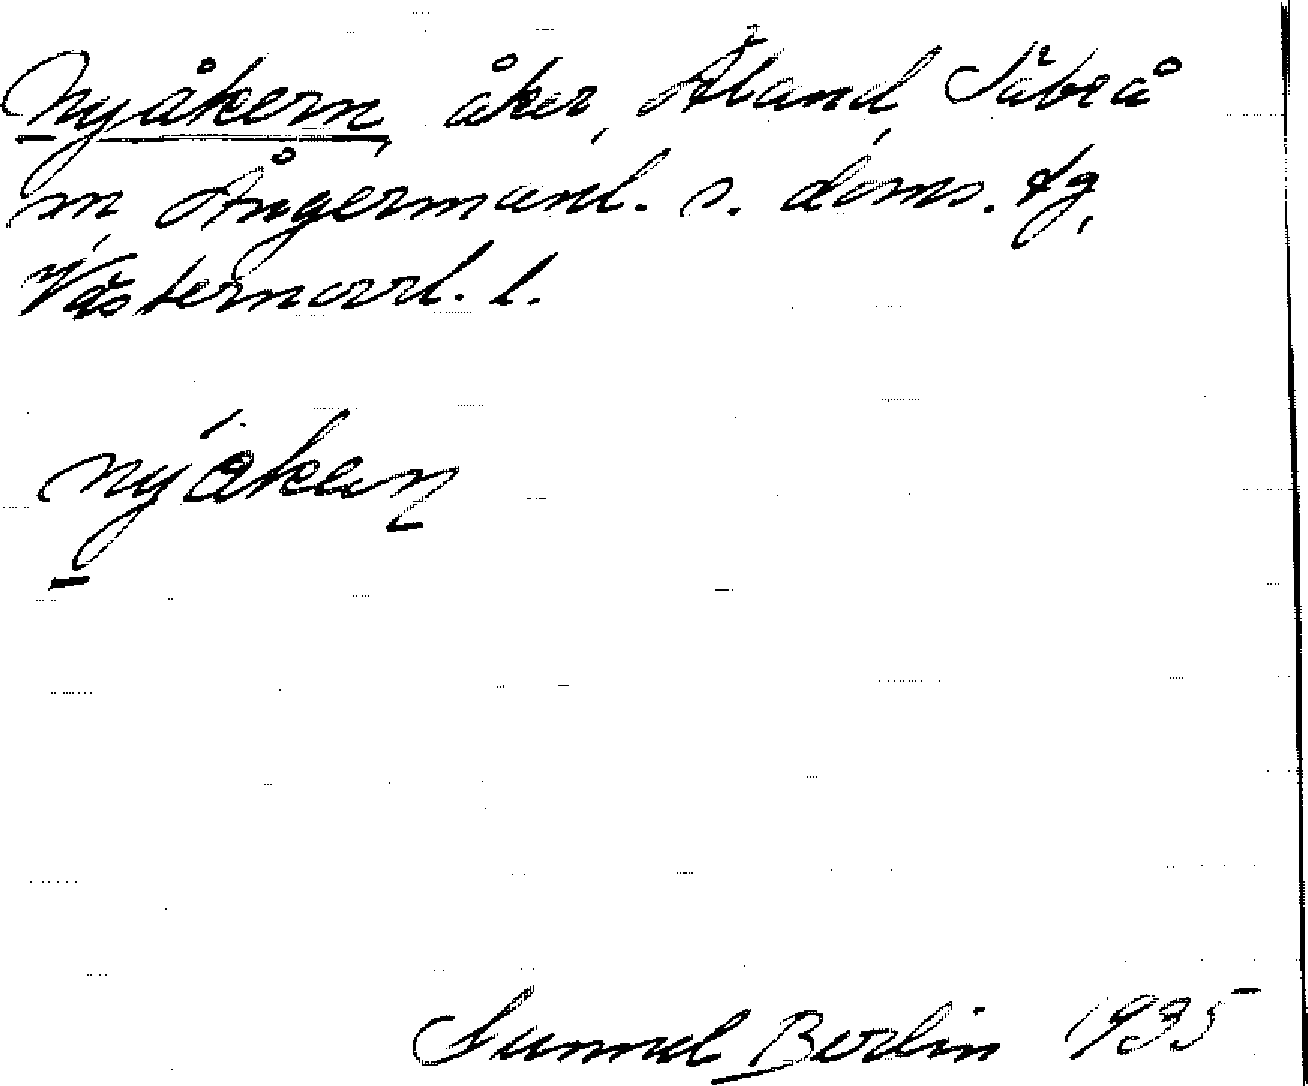 Nyåkern, åker, Åland Säbrå
sn, Ångermanl. s. doms. dg,
Västernorrl. l.
nyåken
Sunmel Berlin 1935